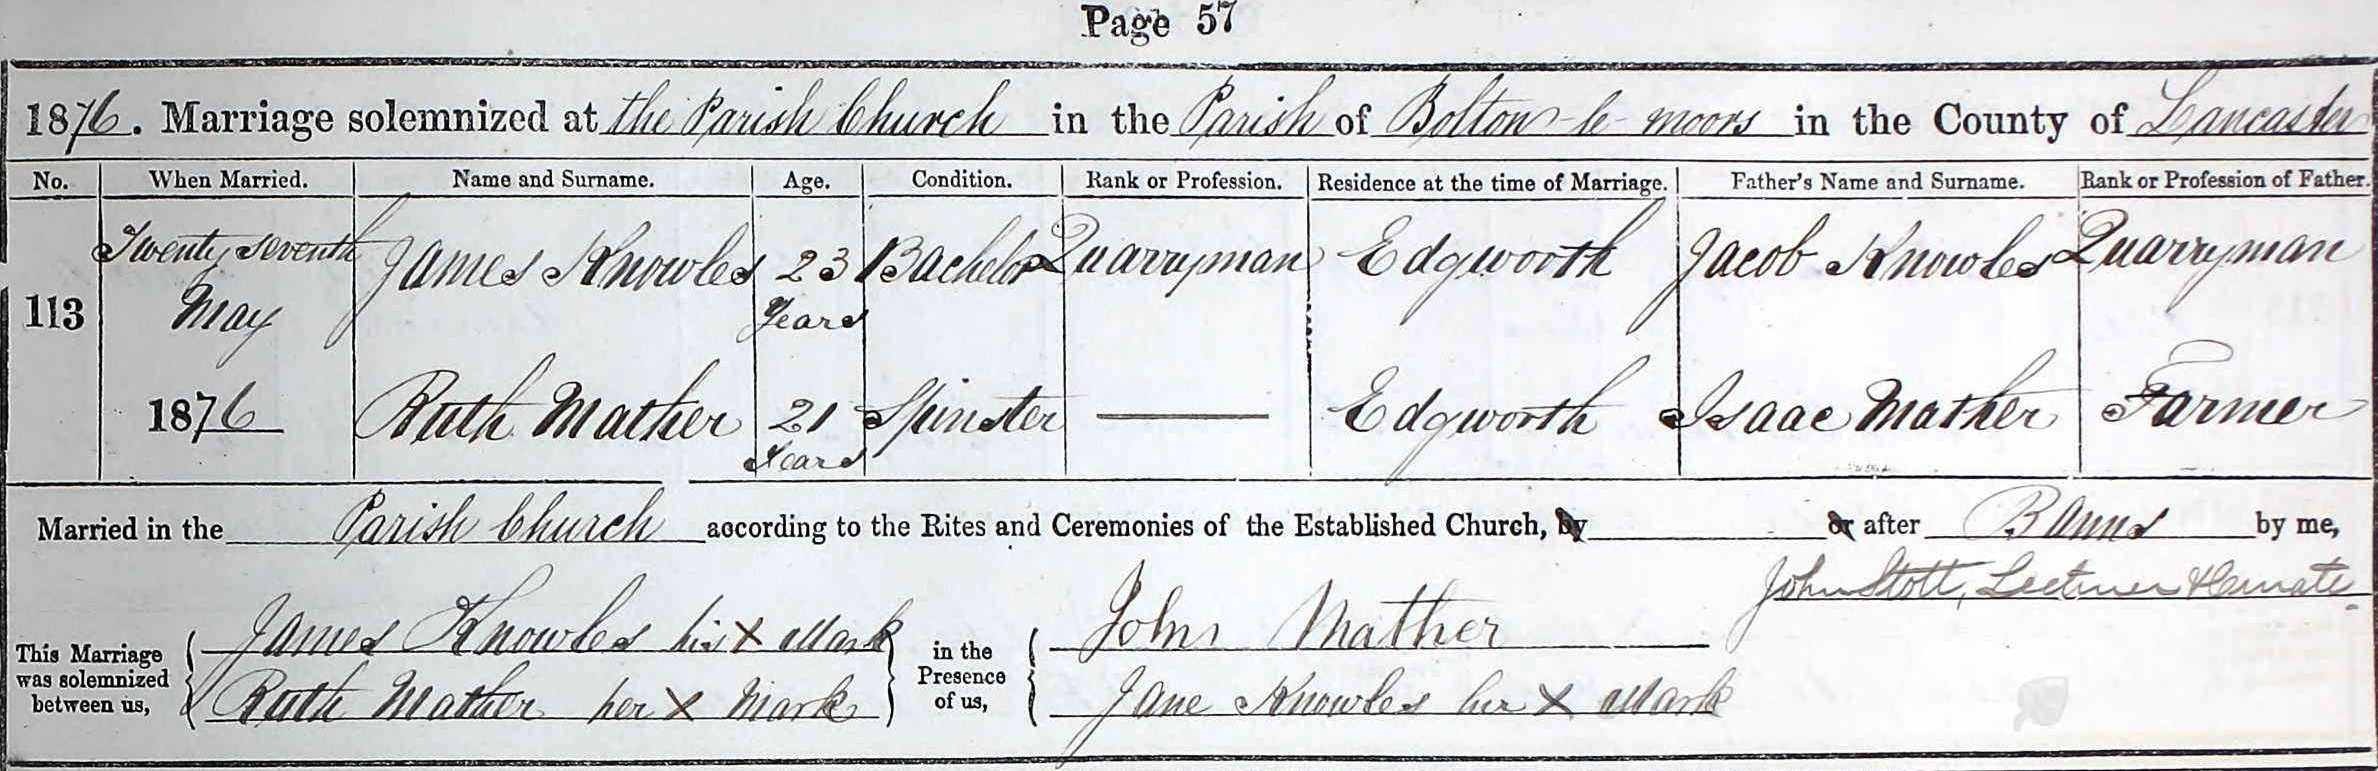 Page 57
1876. Marriage solemnized at the Parish Church in the Parish of Bolton-le-moors in the County of Lancaster
No. When Married. Name and Surname. Age. Condition. Rank or Profession. Residence at the time of Marriage. Father's Name and Surname. Rank or Profession of Father.
113 Twenty seventh May 1876 James Knowles 23 Years Bachelor Quarryman Edgworth Jacob Knowles Quarryman
Ruth Mather 21 Years Spinster — Edgworth Isaac Mather Farmer
Married in the Parish Church according to the Rites and Ceremonies of the Established Church, by or after Banns by me,
John Stott, Lecturer & Curate.
This Marriage was solemnized between us, James Knowles his X Mark in the Presence of us, John Mather
Ruth Mather her X Mark Jane Knowles her X Mark